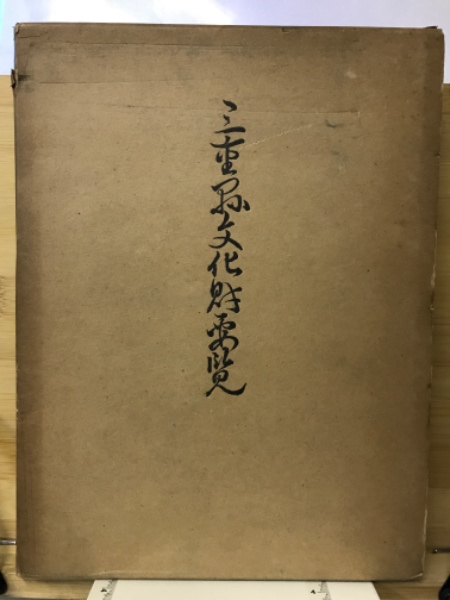 三重縣文化財要覧